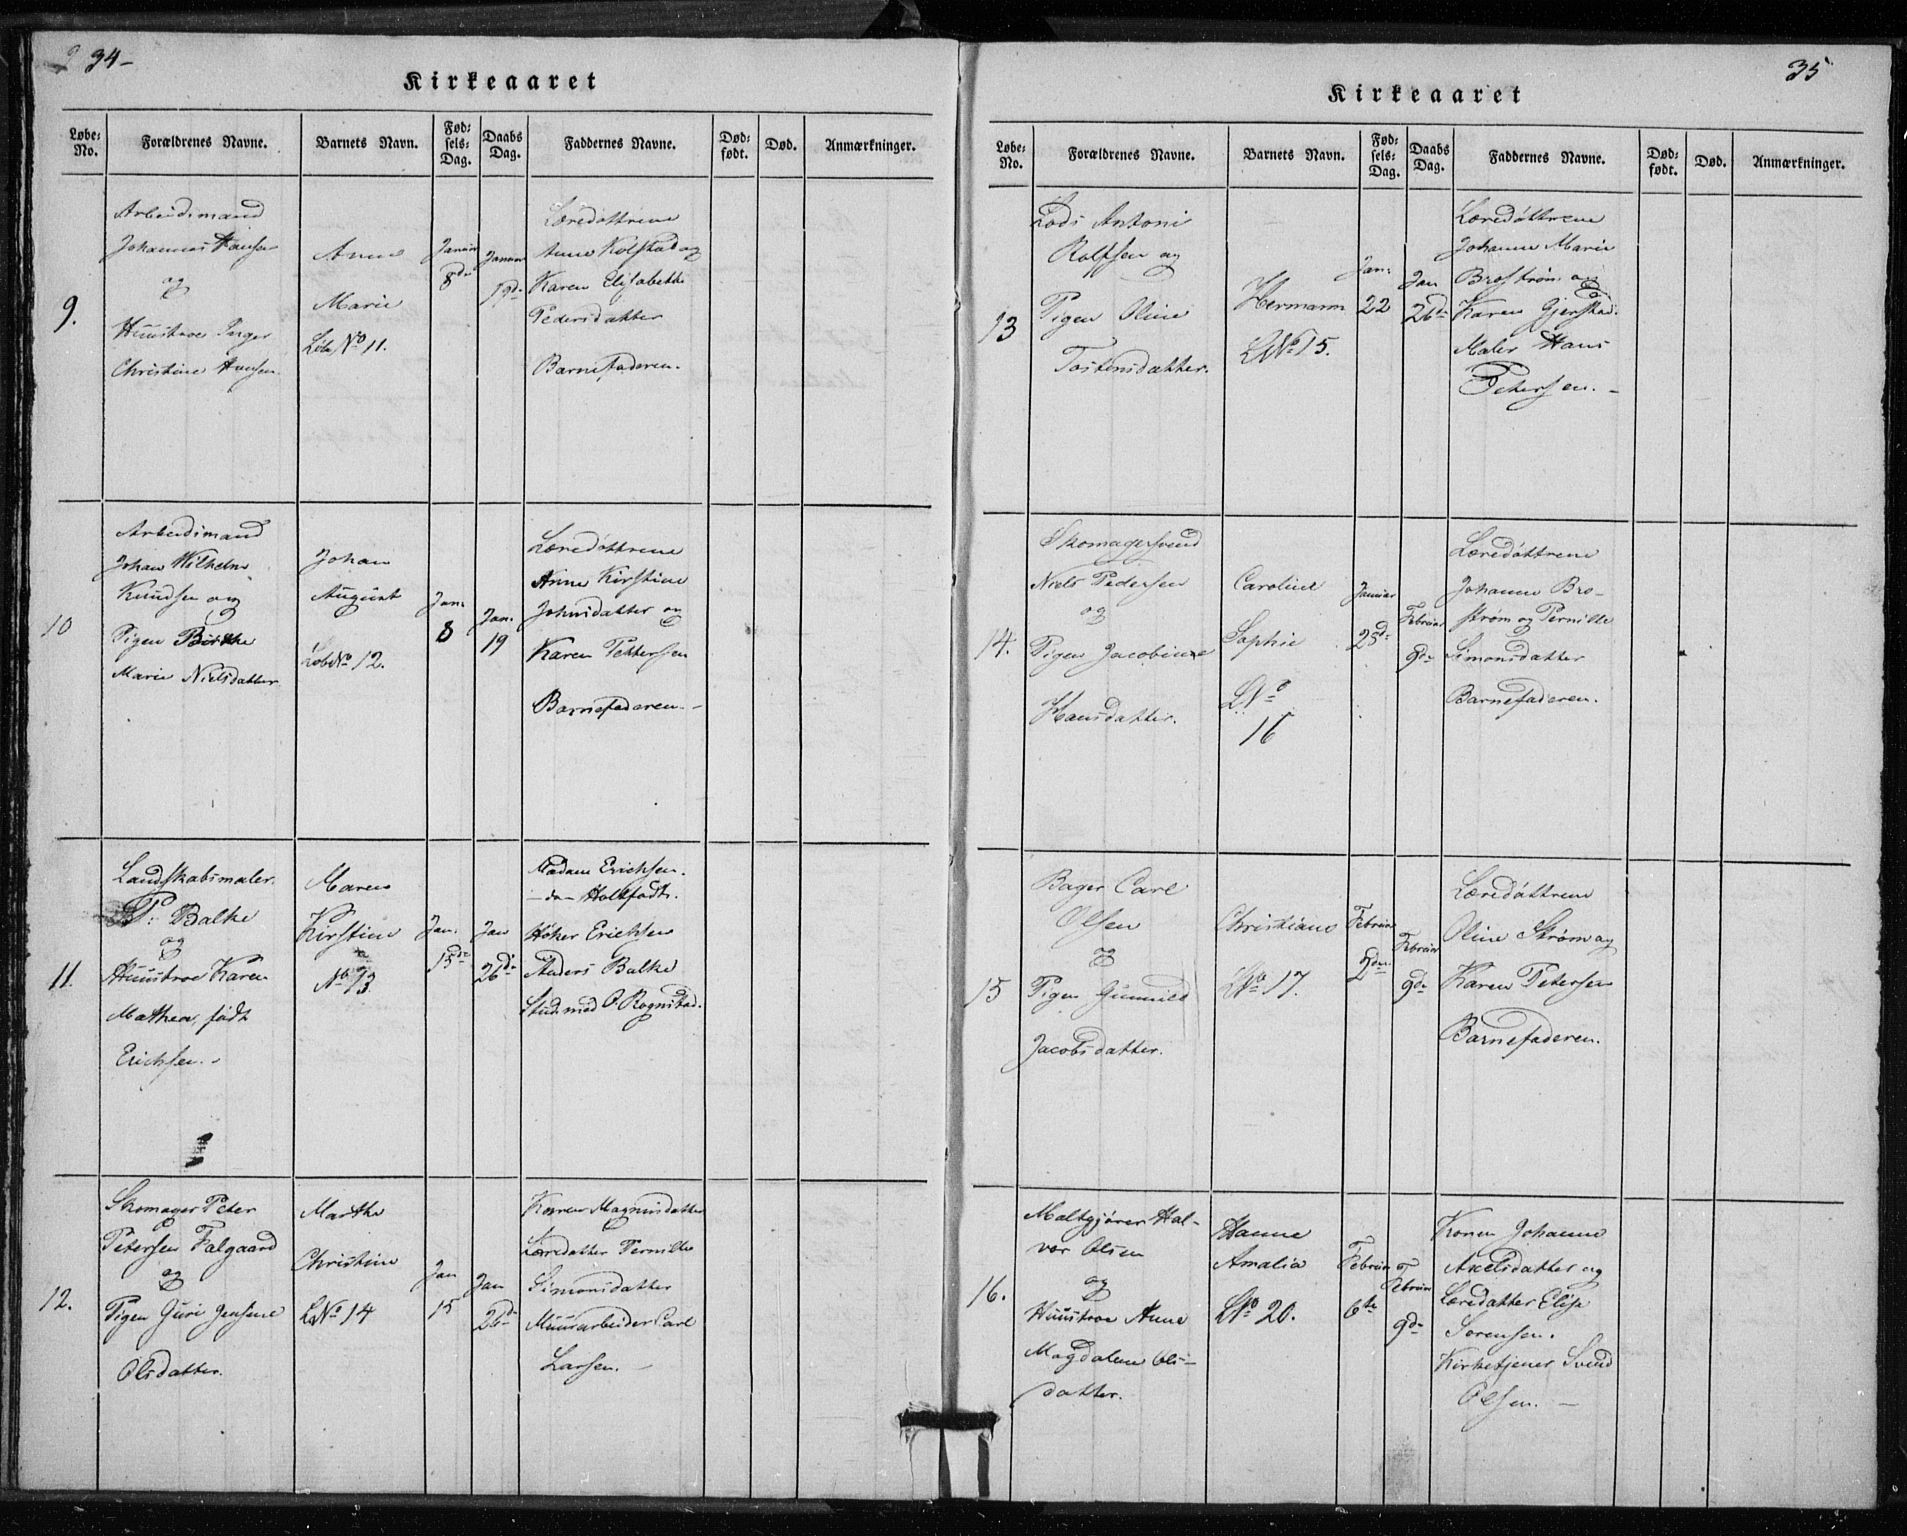 34-
Kirkeaaret
Løbe-No.
Forældrenes Navne.
Barnets Navn.
Fød-sels-Dag.
Daabs Dag.
Faddernes Navne.
Død-født.
Død.
Anmærkninger.
9.
Arbeidsmand
Johannes Hansen
og
Huustroe Inger
Christine Hansen.
Anne
Marie
Løb No 11.
Januar
8de
Januar
19de
Læredøttrene
Anne Kolstad og
Karen Elisabethe
Pedersdatter
Barnefaderen.
10
Arbeidsmand
Johan Wilhelm
Knudsen og
Pigen Birthe
Marie Nielsdatter
Johan
August
Løb No 12.
Jan.
8
Jan.
19
Læredøttrene
Anne Kirstine
Johnsdatter og
Karen Pettersen
Barnefaderen.-
11.
Landskabsmaler
P: Balke
og
Huustroe Karen
Mathea, født
Erichsen.-
Maren
Kirstine
No 13
Jan.
15de
Jan
26de
Madam Erichsen.
-do- Holtfodt.
Høker Erichsen
Anders Balke
Stud. med O Rognstad.
12.
Skomager Peter
Petersen Falgaard
og
Pigen Guri Jensine
Olsdatter.
Marthe
Christine
LNo 14
Jan
15
Jan
26de
Karen Magnusdatter
Læredatter Pernille
Simonsdatter
Muurarbeider Carl
Larsen. -
35
Kirkeaaret
Løbe-No.
Forældrenes Navne.
Barnets Navn.
Fød-sels-Dag.
Daabs Dag.
Faddernes Navne.
Død-født.
Død.
Anmærkninger.
13
Lods Antoni
Rolfsen og
Pigen Oline
Tostensdatter.
Hermann
LNo 15.
Jan.
22
Jan
26de
Læredøttrene
Johanne Marie
Brostrøm og
Karen Gjerstad.
Maler Hans
Petersen. -
14.
Skomagersvend
Niels Pedersen
og
Pigen Jacobine
Hansdatter.
Caroline
Sophie
LNo
16
Januar
25de
Februar
9de
Læredøttrene
Johanne Bro-
strøm og Pernille
Simonsdatter
Barnefaderen.
15
Bager Carl
Olsen
og
Pigen Gunnild
Jacobsdatter.
Christiane
LNo 17.
Februar
2den
Februar
9de
Læredøttrene
Oline Strøm og
Karen Petersen
Barnefaderen.
16.
Maltgjører Hal-
vor Olsen
og
Huustroe Anne
Magdalene Ols-
datter.
Hanne
Amalia
LNo 20.
Februar
6te
Februar
9de
Konen Johanne
Axelsdatter og
Læredatter Elise
Sørensen.
Kirketjener Svend
Olsen. -